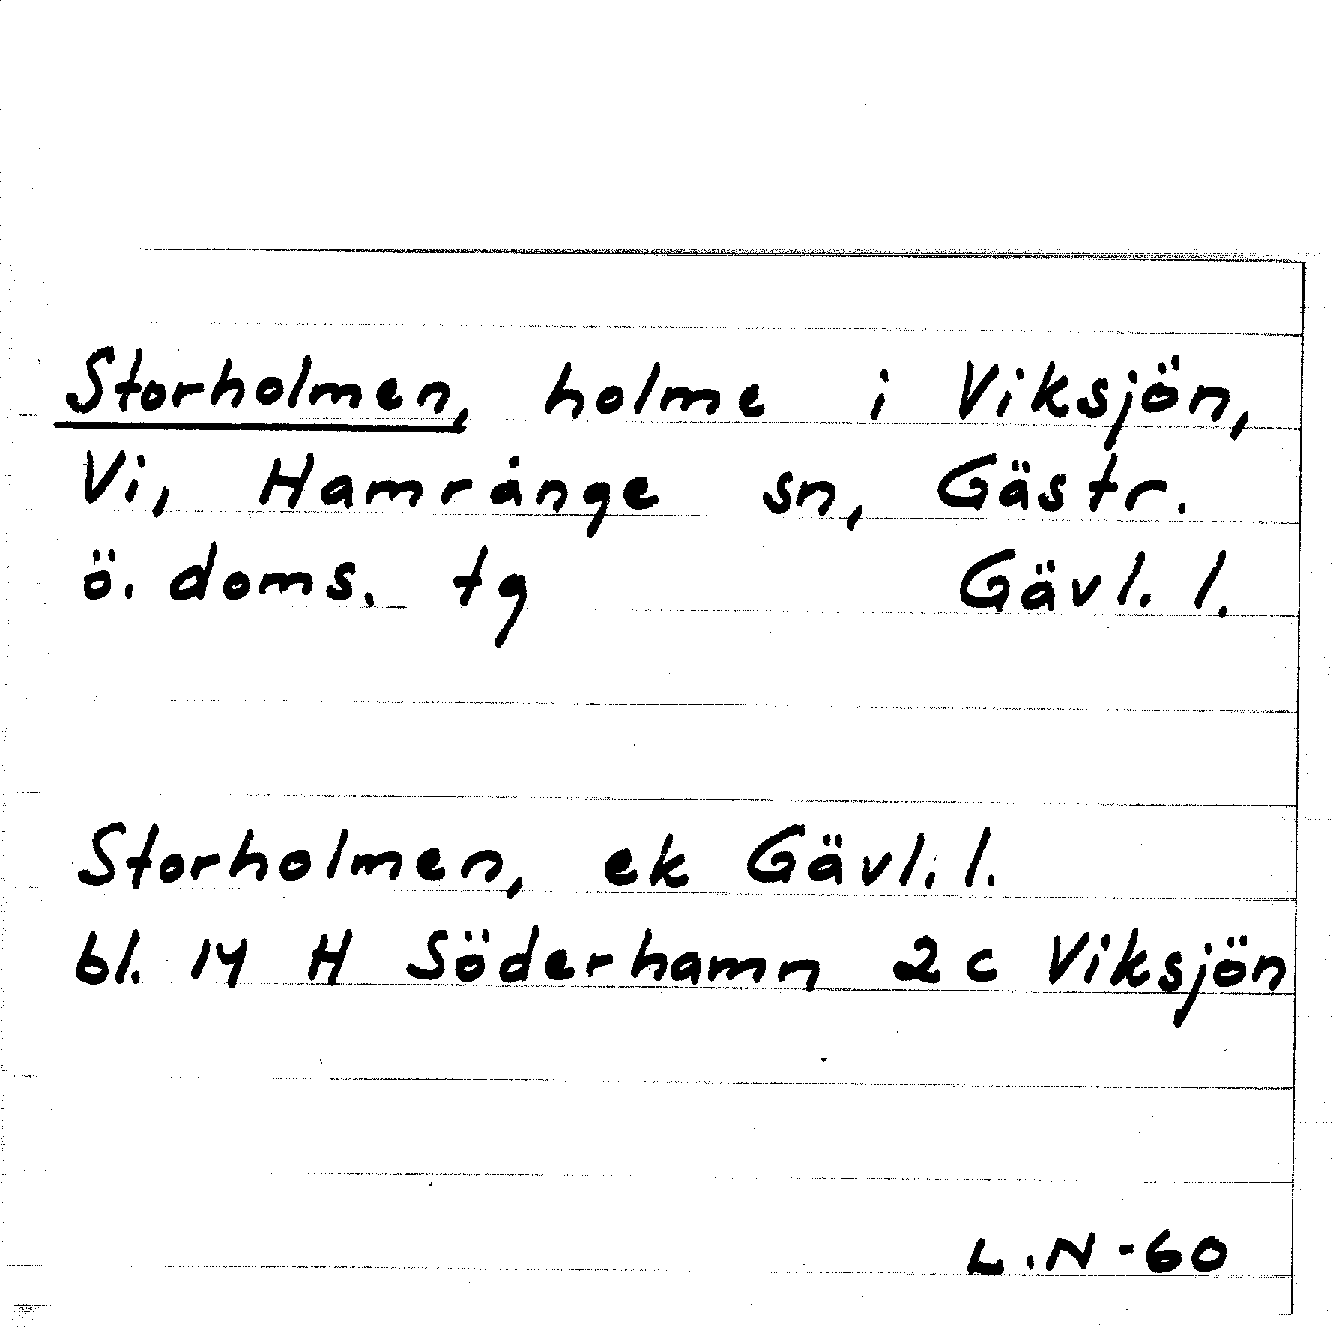 Storholmen, holme i Viksjön,
Vi, Hamrånge sn, Gästr.
ö. doms. tg Gävl. l.
Storholmen, ek Gävl. l.
bl. 14 H Söderhamn 2 c Viksjön
L.N-60